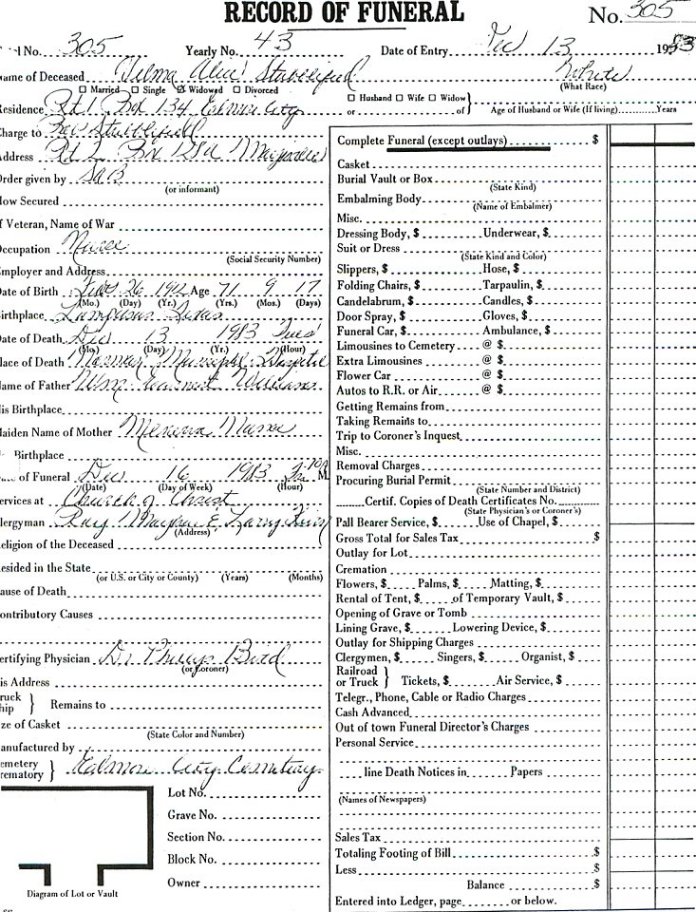 RECORD OF FUNERAL No. 305
l No. 305 Yearly No. 43 Date of Entry Dec 13 1983
ame of Deceased Velma Alice Stubblefield White
(What Race)
☐ Married ☐ Single ☒ Widowed ☐ Divorced ☐ Husband ☐ Wife ☐ Widow
esidence Rt 1 Bx 134 City or of Age of Husband or Wife (If living) Years
harge to Stubblefield
ddress Rt 2 Bx 128A Magnolia
rder given by
(or informant)
ow Secured
f Veteran, Name of War
ccupation Nurse
(Social Security Number)
mployer and Address
ate of Birth 26 1912 Age 71 9 17
(Mo.) (Day) (Yr.) (Yrs.) (Mos.) (Days)
irthplace Lampasas Texas
ate of Death Dec 13 1983 Tues
(Mo.) (Day) (Yr.) (Hour)
lace of Death Hospital
ame of Father Wm Williams
is Birthplace
aiden Name of Mother
Birthplace
of Funeral Dec 16 1983 M.
(Date) (Day of Week) (Hour)
ervices at Church of Christ
lergyman Ray & Larry
(Address)
eligion of the Deceased
esided in the State
(or U.S. or City or County) (Years) (Months)
ause of Death
ontributory Causes
ertifying Physician Dr
(or Coroner)
is Address
ruck
hip } Remains to
ze of Casket
(State Color and Number)
anufactured by
emetery
rematory } City Cemetery
Lot No.
Grave No.
Section No.
Block No.
Owner
Diagram of Lot or Vault
Complete Funeral (except outlays) $
Casket
Burial Vault or Box
(State Kind)
Embalming Body
(Name of Embalmer)
Misc.
Dressing Body, $ Underwear, $
Suit or Dress
(State Kind and Color)
Slippers, $ Hose, $
Folding Chairs, $ Tarpaulin, $
Candelabrum, $ Candles, $
Door Spray, $ Gloves, $
Funeral Car, $ Ambulance, $
Limousines to Cemetery @ $
Extra Limousines @ $
Flower Car @ $
Autos to R.R. or Air @ $
Getting Remains from
Taking Remains to
Trip to Coroner's Inquest
Misc.
Removal Charges
Procuring Burial Permit
(State Number and District)
Certif. Copies of Death Certificates No.
(State Physician's or Coroner's)
Pall Bearer Service, $ Use of Chapel, $
Gross Total for Sales Tax $
Outlay for Lot
Cremation
Flowers, $ Palms, $ Matting, $
Rental of Tent, $ of Temporary Vault, $
Opening of Grave or Tomb
Lining Grave, $ Lowering Device, $
Outlay for Shipping Charges
Clergymen, $ Singers, $ Organist, $
Railroad
or Truck } Tickets, $ Air Service, $
Telegr., Phone, Cable or Radio Charges
Cash Advanced
Out of town Funeral Director's Charges
Personal Service
line Death Notices in Papers
(Names of Newspapers)
Sales Tax
Totaling Footing of Bill $
Less $
Balance $
Entered into Ledger, page or below.